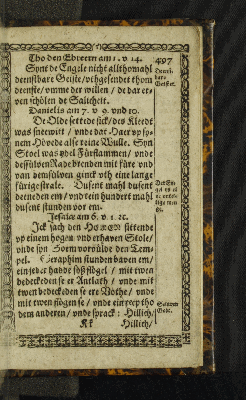 Tho den Ebreern am 1. v 14.
497
Synt de Engele nicht allthomahl
deenstbare Geiste / vthgesendet thom
deenste / vmme der willen / de dar er-
ven schölen de Salicheit.
Danielis am 7. v 9. vnd 10.
De Olde settede sick / des Kleedt
was sneewitt / vnde dat Haer vp sy-
nem Höuede alse reine Wulle. Syn
Stoel was ydel Fürflammen / vnde
dessüluen Rade brenden mit füre vnd
van demsüluen ginck vth eine lange
fürige strale. Dusent mahl dusent
deeneden em / vnd tein hundert mahl
dusent stunden vor em.
Jesaiae am 6. v 1. 2c.
Ick sach den HERRN sittende
vp einem hogen vnd erhaven Stole /
vnde syn Soem vorvülde den Tem-
pel. Seraphim stunden baven em /
ein jeder hadde söß flögel / mit twen
bedeckeden se er Antlath / vnde mit
twen bedeckeden se ere Vöthe / vnde
mit twen flögen se / vnde ein reep tho
dem anderen / vnde sprack: Hillich /
Kk
Hillich /